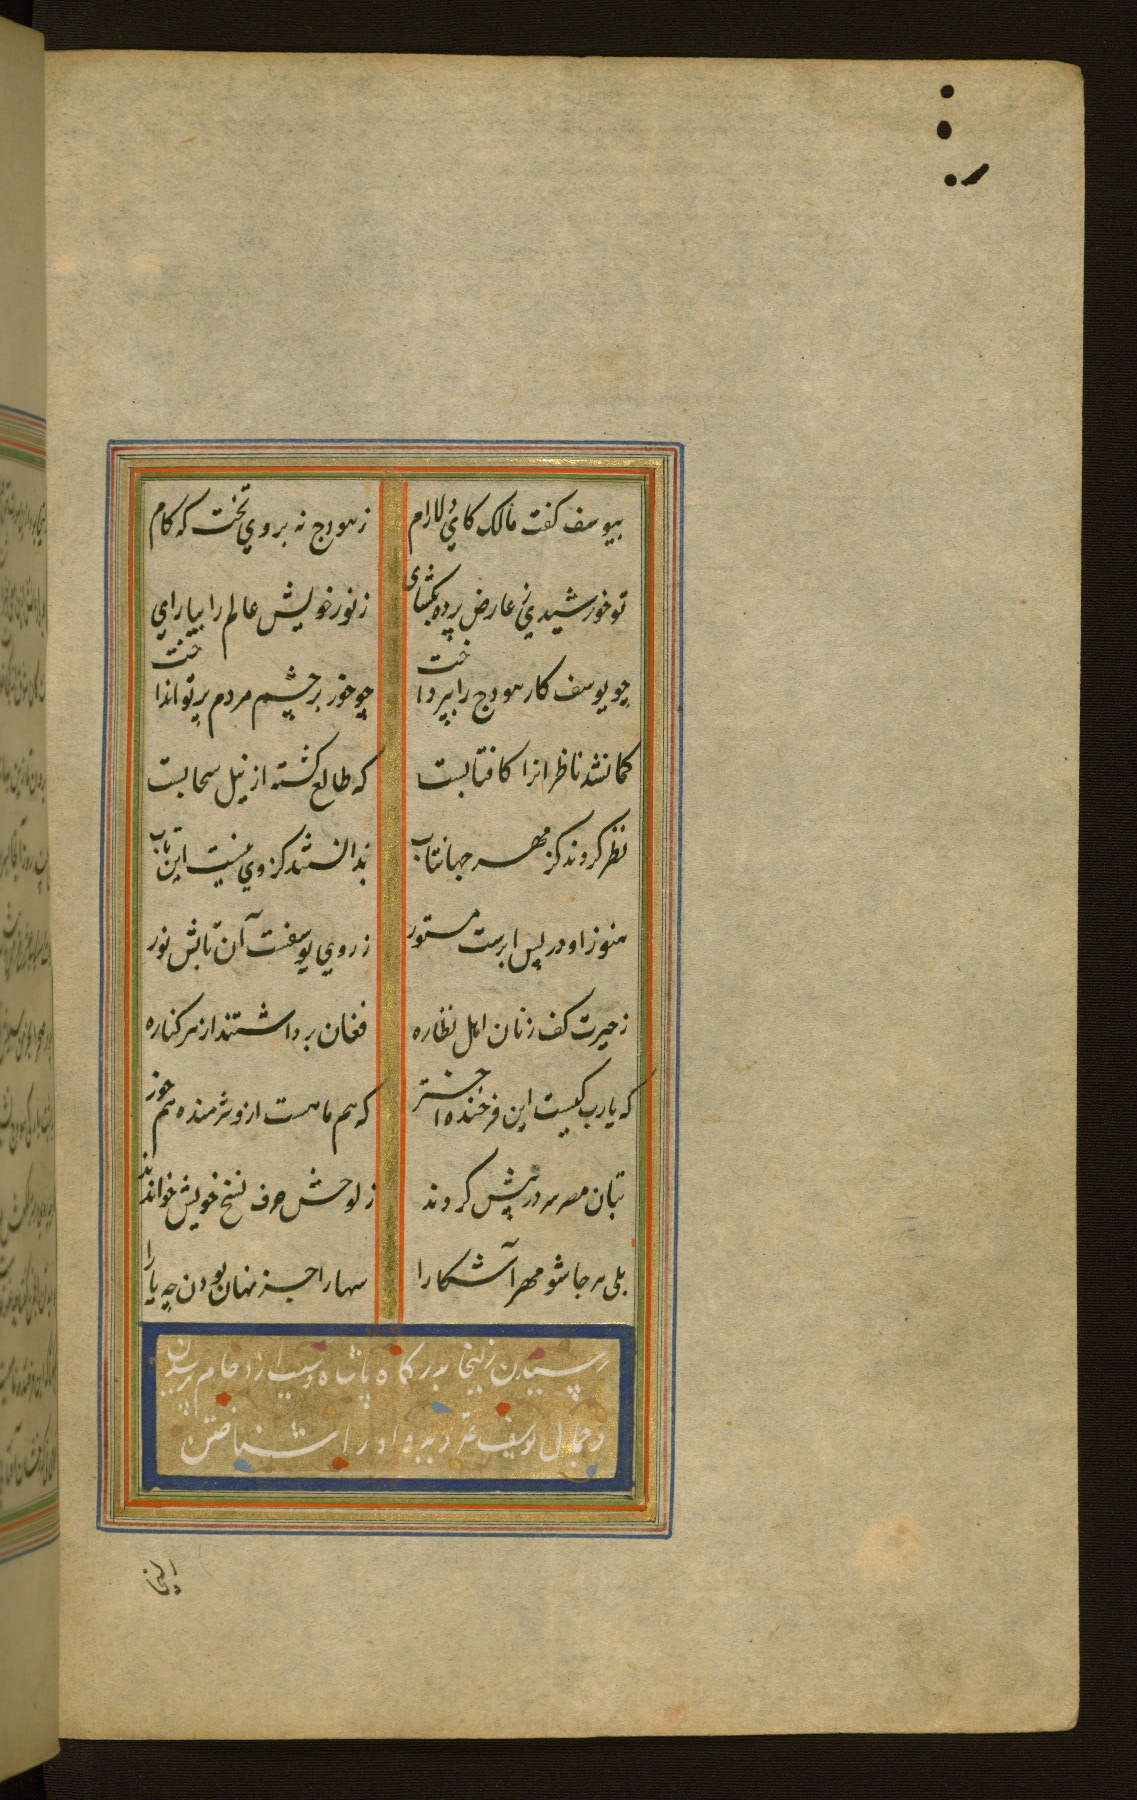 بیوسف کفت مالک کای دلارام زهودج نه بروی تخت که کام
تو خورشیدی ز عارض پرده بکشای زنور خویش عالم را بیارای
چو یوسف کار هودج را بپرداخت چو خور بر چشم مردم پرتو انداخت
کمانشد ناظرانرا کافتابست که طالع کشته از نیل سحابست
نظر کردند کز مهر جهانتاب بدانستند کز وی نیست این تاب
هنوز او در پس ابرست مستور ز روی یوسفست آن تابش نور
زحیرت کف زنان اهل نظاره فغان برداشتند از هر کناره
که یارب کیست این فرخنده اختر که هم ماهست ازو شرمنده هم خور
بتان مصر سر در پیش کردند زلوحش حرف نسخ خویش خواندند
بلی هر جا شود مهر آشکارا سها را جز نهان بودن چه یارا
رسیدن زلیخا بدرکاه پادشاه و سبب ازدحام پرسیدن
و جمال یوسف علیه دیدن و او را شناختن
زلیخا